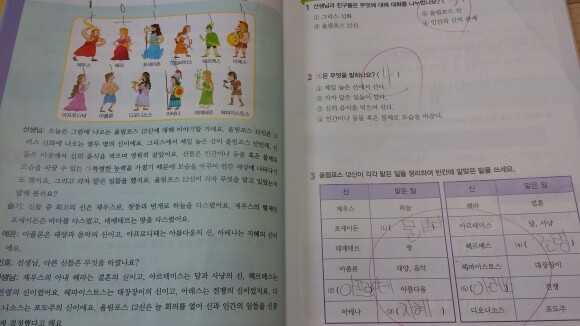 제우스
헤라
포세이돈
헤르메스
아레스
아프로디테
아폴론
디오니소스
아테나
데메테르
헤파이스토스
선생님: 오늘은 그림에 나오는 올림포스 12신에 대해 이야기할 거예요. 올림포스 12신은 그
리스 신화에 나오는 열두 명의 신이에요. 그리스에서 제일 높은 산이 올림포스 산인데, 신
들은 이곳에서 신의 음식을 먹으며 영원히 살았어요. 신들은 인간이나 동물 혹은 물체로
모습을 바꿀 수 있는
능력을 가졌기 때문에 모습을 바꾸어 인간 세상에 나타나기
도 했어요. 그리고 각자 맡은 일들을 했지요. 올림포스 12신이 각자 무엇을 맡고 있었는지
말해 볼까요?
슬기: 신들 중 최고의 신은 제우스로, 천둥과 번개로 하늘을 다스렸어요. 제우스의 형제인
포세이돈은 바다를 다스렸고, 데메테르는 땅을 다스렸어요.
예은: 아폴론은 태양과 음악의 신이고, 아프로디테는 아름다움의 신, 아테나는 지혜의 신이
에요.
민호: 선생님, 다른 신들은 무엇을 하였나요?
선생님: 제우스의 아내 헤라는 결혼의 신이고, 아르테미스는 달과 사냥의 신, 헤르메스는
전령의 신이었어요. 헤파이스토스는 대장장이의 신이고, 아레스는 전쟁의 신이었지요. 디
오니소스는 포도주의 신이에요. 올림포스 12신은 늘 회의를 열어 신과 인간의 일들을 신중
하게 결정했다고 해요.
1 선생님과 친구들은 무엇에 대해 대화를 나누었나요?
① 그리스 신화
② 올림포스 산
③ 올림포스 12신
④ 인간과 신의 관계
2 ㉠은 무엇을 말하나요? (4)
① 제일 높은 산에서 산다.
② 각자 맡은 일들이 있다.
③ 신의 음식을 먹으며 산다.
④ 인간이나 동물 혹은 물체로 모습을 바꾼다.
3 올림포스 12신이 각각 맡은 일을 정리하여 빈칸에 알맞은 말을 쓰세요.
신 맡은 일 신 맡은 일
제우스 하늘 헤라 결혼
포세이돈 (1) 아르테미스 달, 사냥
데메테르 땅 헤르메스 (4) 전령
아폴론 태양, 음악 헤파이스토스 대장장이
(2) 아름다움 (5) 전쟁
아테나 (3) 지혜 디오니소스 포도주